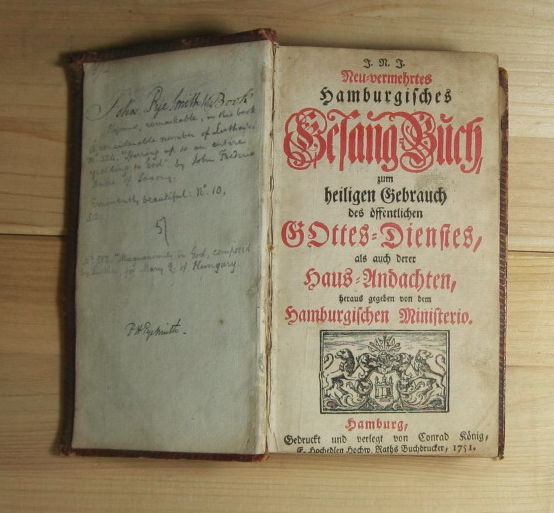 John Pye Smith's Book
Hymns, remarkable, in this book
A considerable number of Luther's.
N° 524, "Stirring up to an entire
yielding to God" by John Frederic
of Saxony.
Eminently beautiful: N° 10,
512,
51
N° 552. in God, composed
by Luther for Mary Q. of Hungary
P H Pye Smith.
J. N. J.
Neu-vermehrtes
Hamburgisches
Gesang-Buch,
zum
heiligen Gebrauch
des öffentlichen
GOttes-Dienstes,
als auch derer
Haus-Andachten,
heraus gegeben von dem
Hamburgischen Ministerio.
Hamburg,
Gedruckt und verlegt von Conrad König,
E. Hochedlen Hochw. Raths Buchdrucker, 1751.